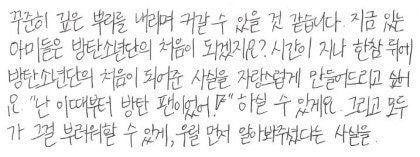 꾸준히 깊은 뿌리를 내리며 커갈 수 있을 것 같습니다. 지금 있는
아미들은 방탄소년단의 처음이 되겠지요? 시간이 지나 한참 뒤에
방탄소년단의 처음이 되어준 사실을 자랑스럽게 만들어드리고 싶어
요. "난 이때부터 방탄 팬이었어!" 하실 수 있게요. 그리고 모두
가 그걸 부러워할 수 있게, 우릴 먼저 알아봐주셨다는 사실을.